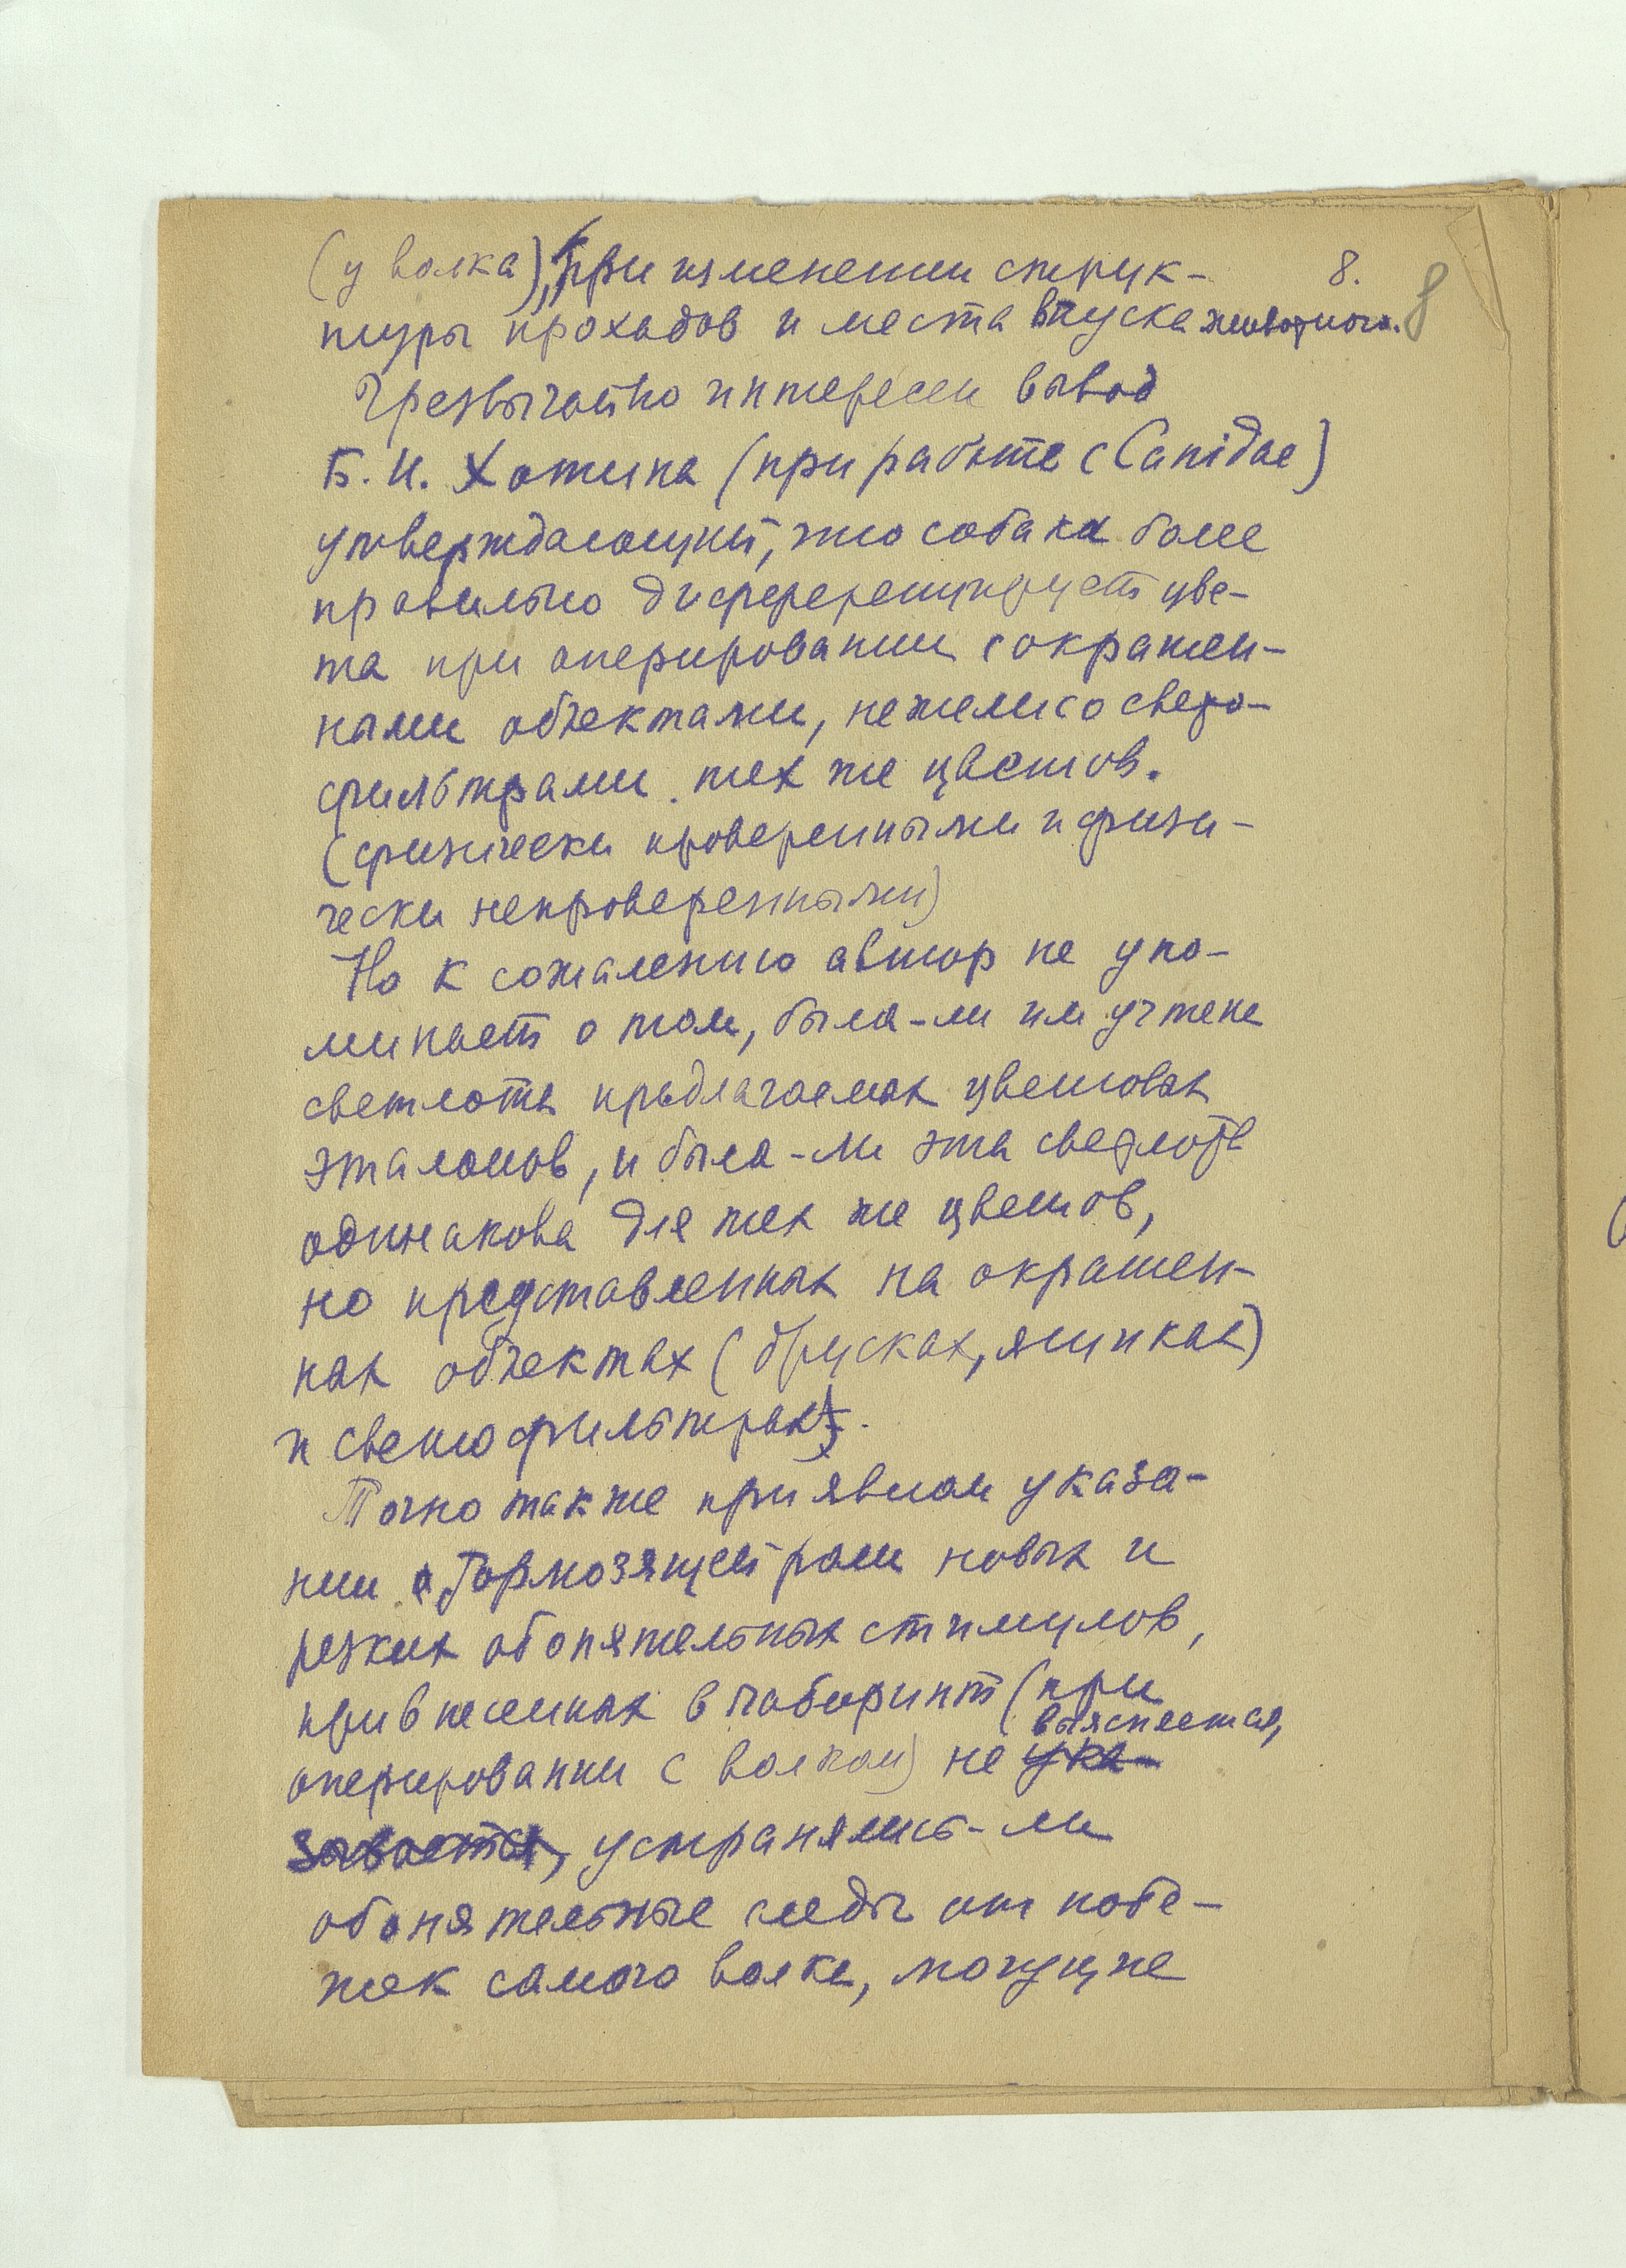 (у волка), при изменении струк- 8.
туры проходов и места впуска животного. 8
Чрезвычайно интересен вывод
Б. И. Хотина (при работе с Canidae)
утверждающий, что собака более
правильно дифференцирует цве-
та при оперировании с окрашен-
ными объектами, нежели со свето-
фильтрами тех же цветов.
(физически проверенными и физи-
чески непроверенными)
Но к сожалению автор не упо-
минает о том, была-ли им учтена
светлота предлагаемых цветовых
эталонов, и была-ли эта светлота
одинакова для тех же цветов,
но представленных на окрашен-
ных объектах (брусках, ящиках)
и светофильтрах.
Точно также при явном указа-
нии о тормозящей роли новых и
резких обонятельных стимулов,
привнесенных в лабиринт (при
выясняется,
оперировании с волком) не ука-
зывается, устранялись-ли
обонятельные следы от побе-
жек самого волка, могущие